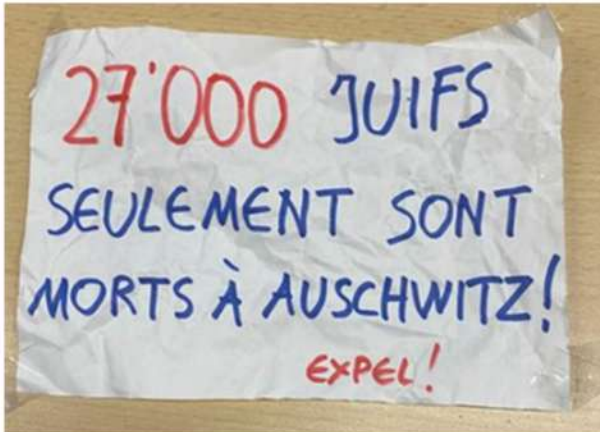 27'000 JUIFS
SEULEMENT SONT
MORTS À AUSCHWITZ!
EXPEL!